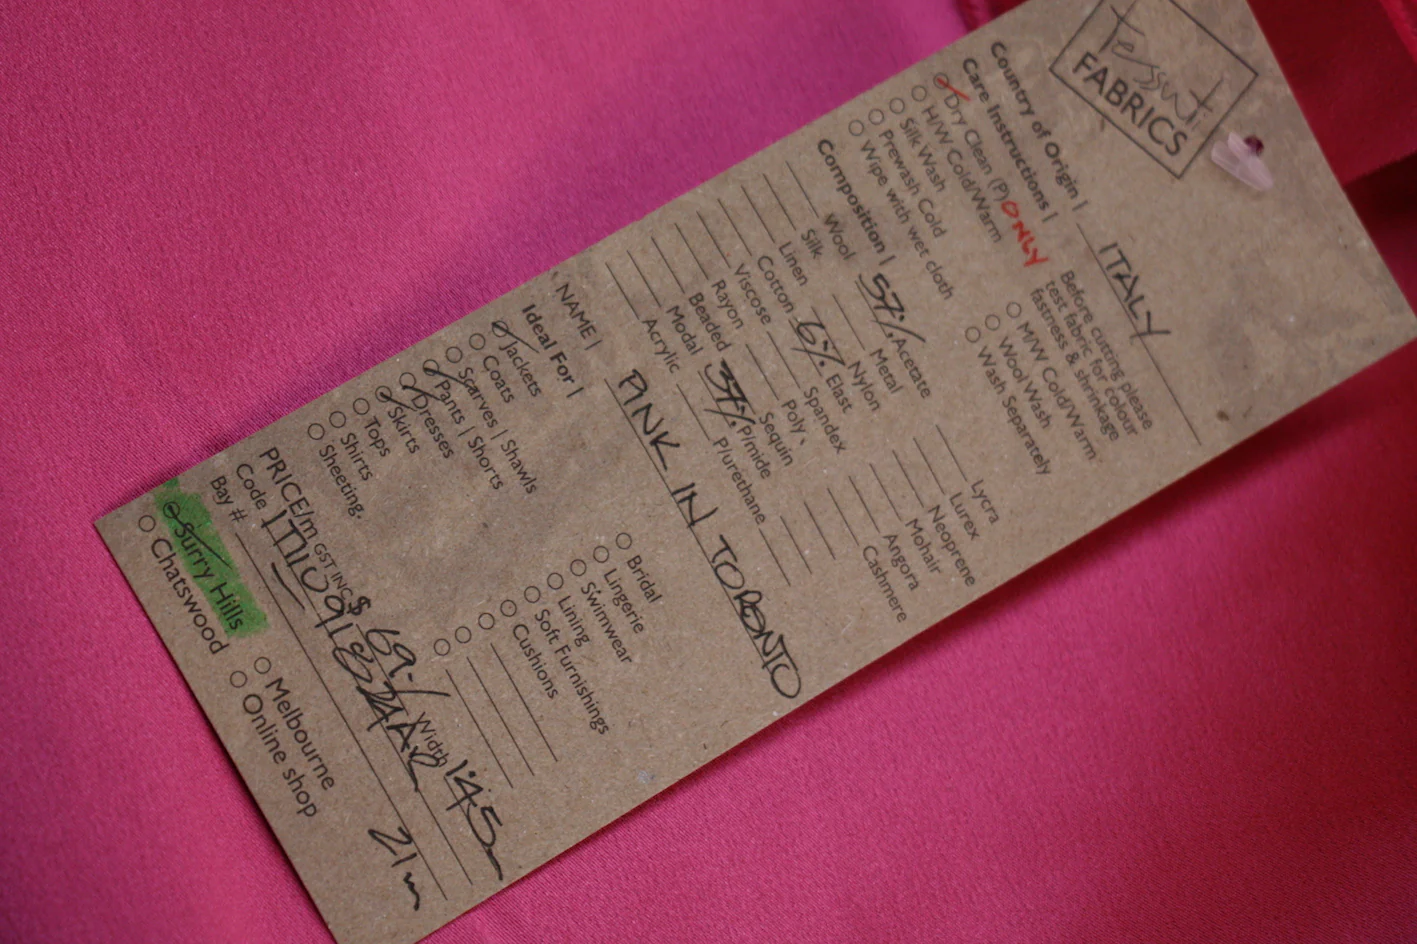 Tessuti
FABRICS
Country of Origin | ITALY
Care Instructions |
Dry Clean (P) ONLY
H/W Cold/Warm
Silk Wash
Prewash Cold
Wipe with wet cloth
Before cutting please
test fabric for colour
fastness & shrinkage
M/W Cold/Warm
Wool Wash
Wash Separately
Composition |
Wool
Silk
Linen
Cotton
Viscose
Rayon
Beaded
Modal
Acrylic
57% Acetate
Metal
Nylon
6% Elast
Spandex
Poly
Sequin
37% P/mide
P/urethane
Lycra
Lurex
Neoprene
Mohair
Angora
Cashmere
NAME | PINK IN TORONTO
Ideal For |
Jackets
Coats
Scarves | Shawls
Pants | Shorts
Dresses
Skirts
Tops
Shirts
Sheeting
Bridal
Lingerie
Swimwear
Lining
Soft Furnishings
Cushions
PRICE/m GST INC $ 69.- Width 1.45m
Code
Bay # 21m
Surry Hills
Chatswood
Melbourne
Online shop